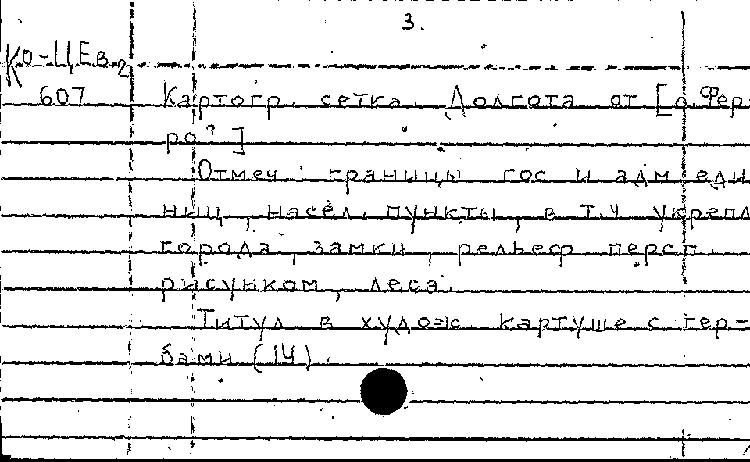 3.
Ко-ЦЕв2
607 Картогр. сетка. Долгота от [о. Фер-
ро?]
Отмеч.: границы гос. и адм. еди-
ниц, насел. пункты, в т.ч. укрепл.
города, замки, рельеф персп.
рисунком, леса.
Титул в худож. картуше с гер-
бами (14).